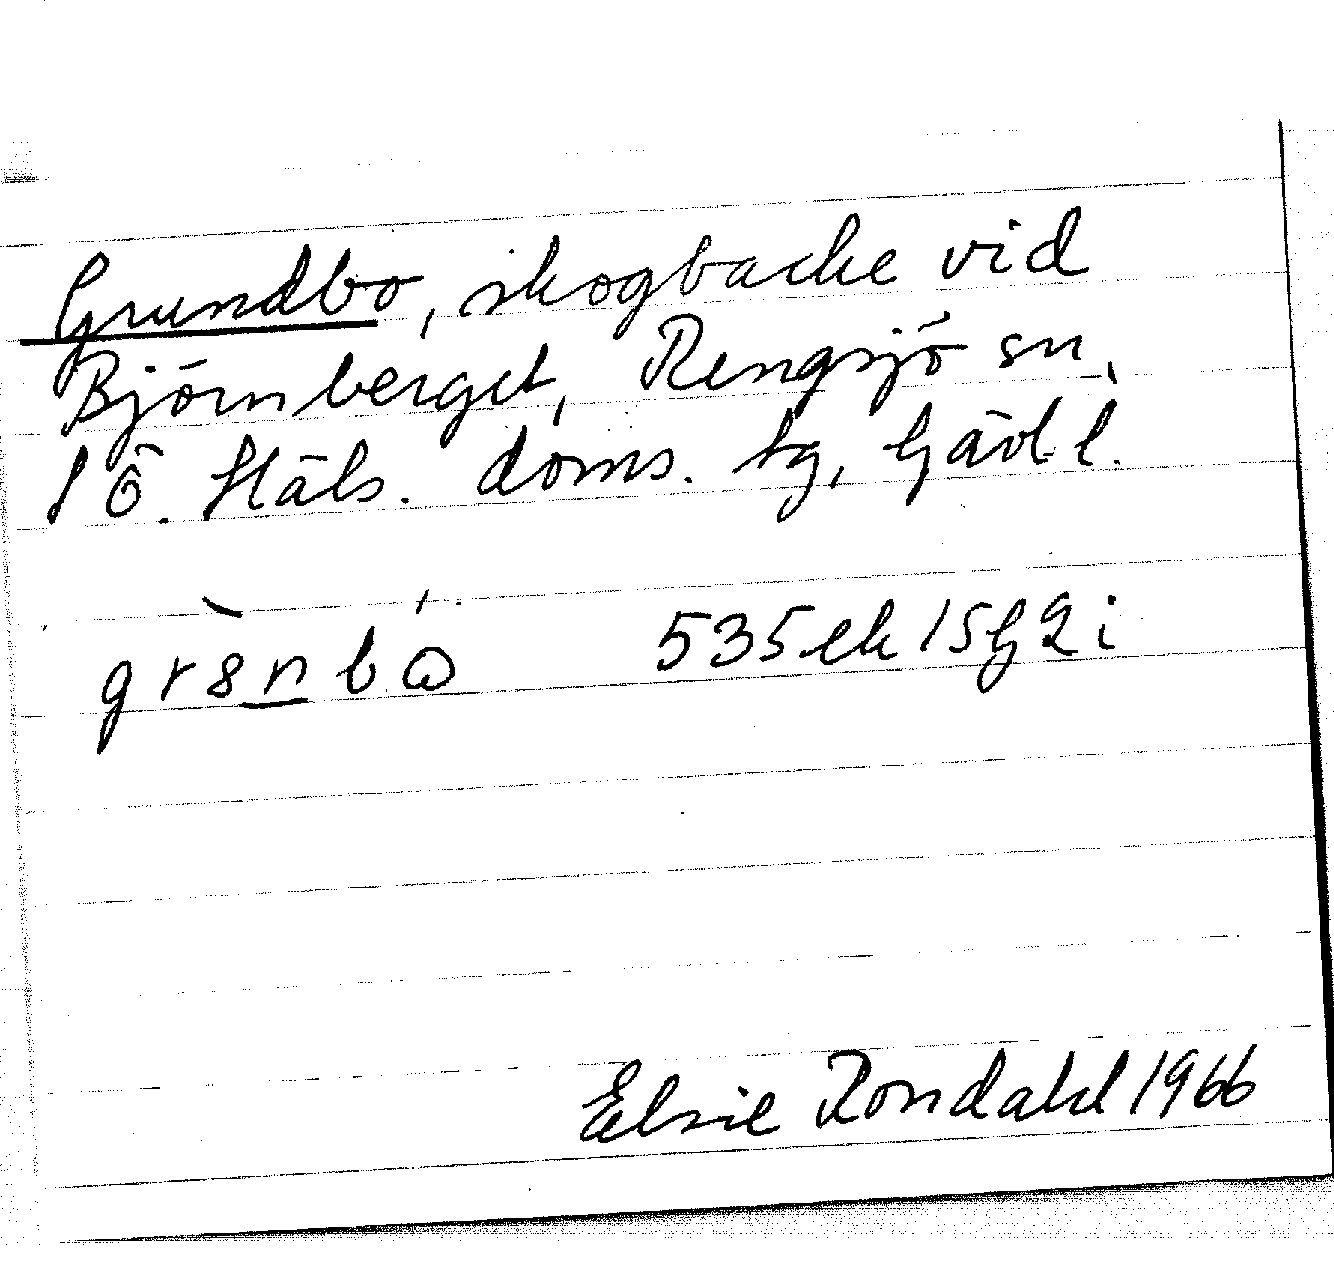 Grundbo, skogbacke vid
Björnberget, Rengsjö sn,
S Ö. Häls. doms. tg, Gävl l.
535 ek 15G2i
Elsie Rondahl 1966